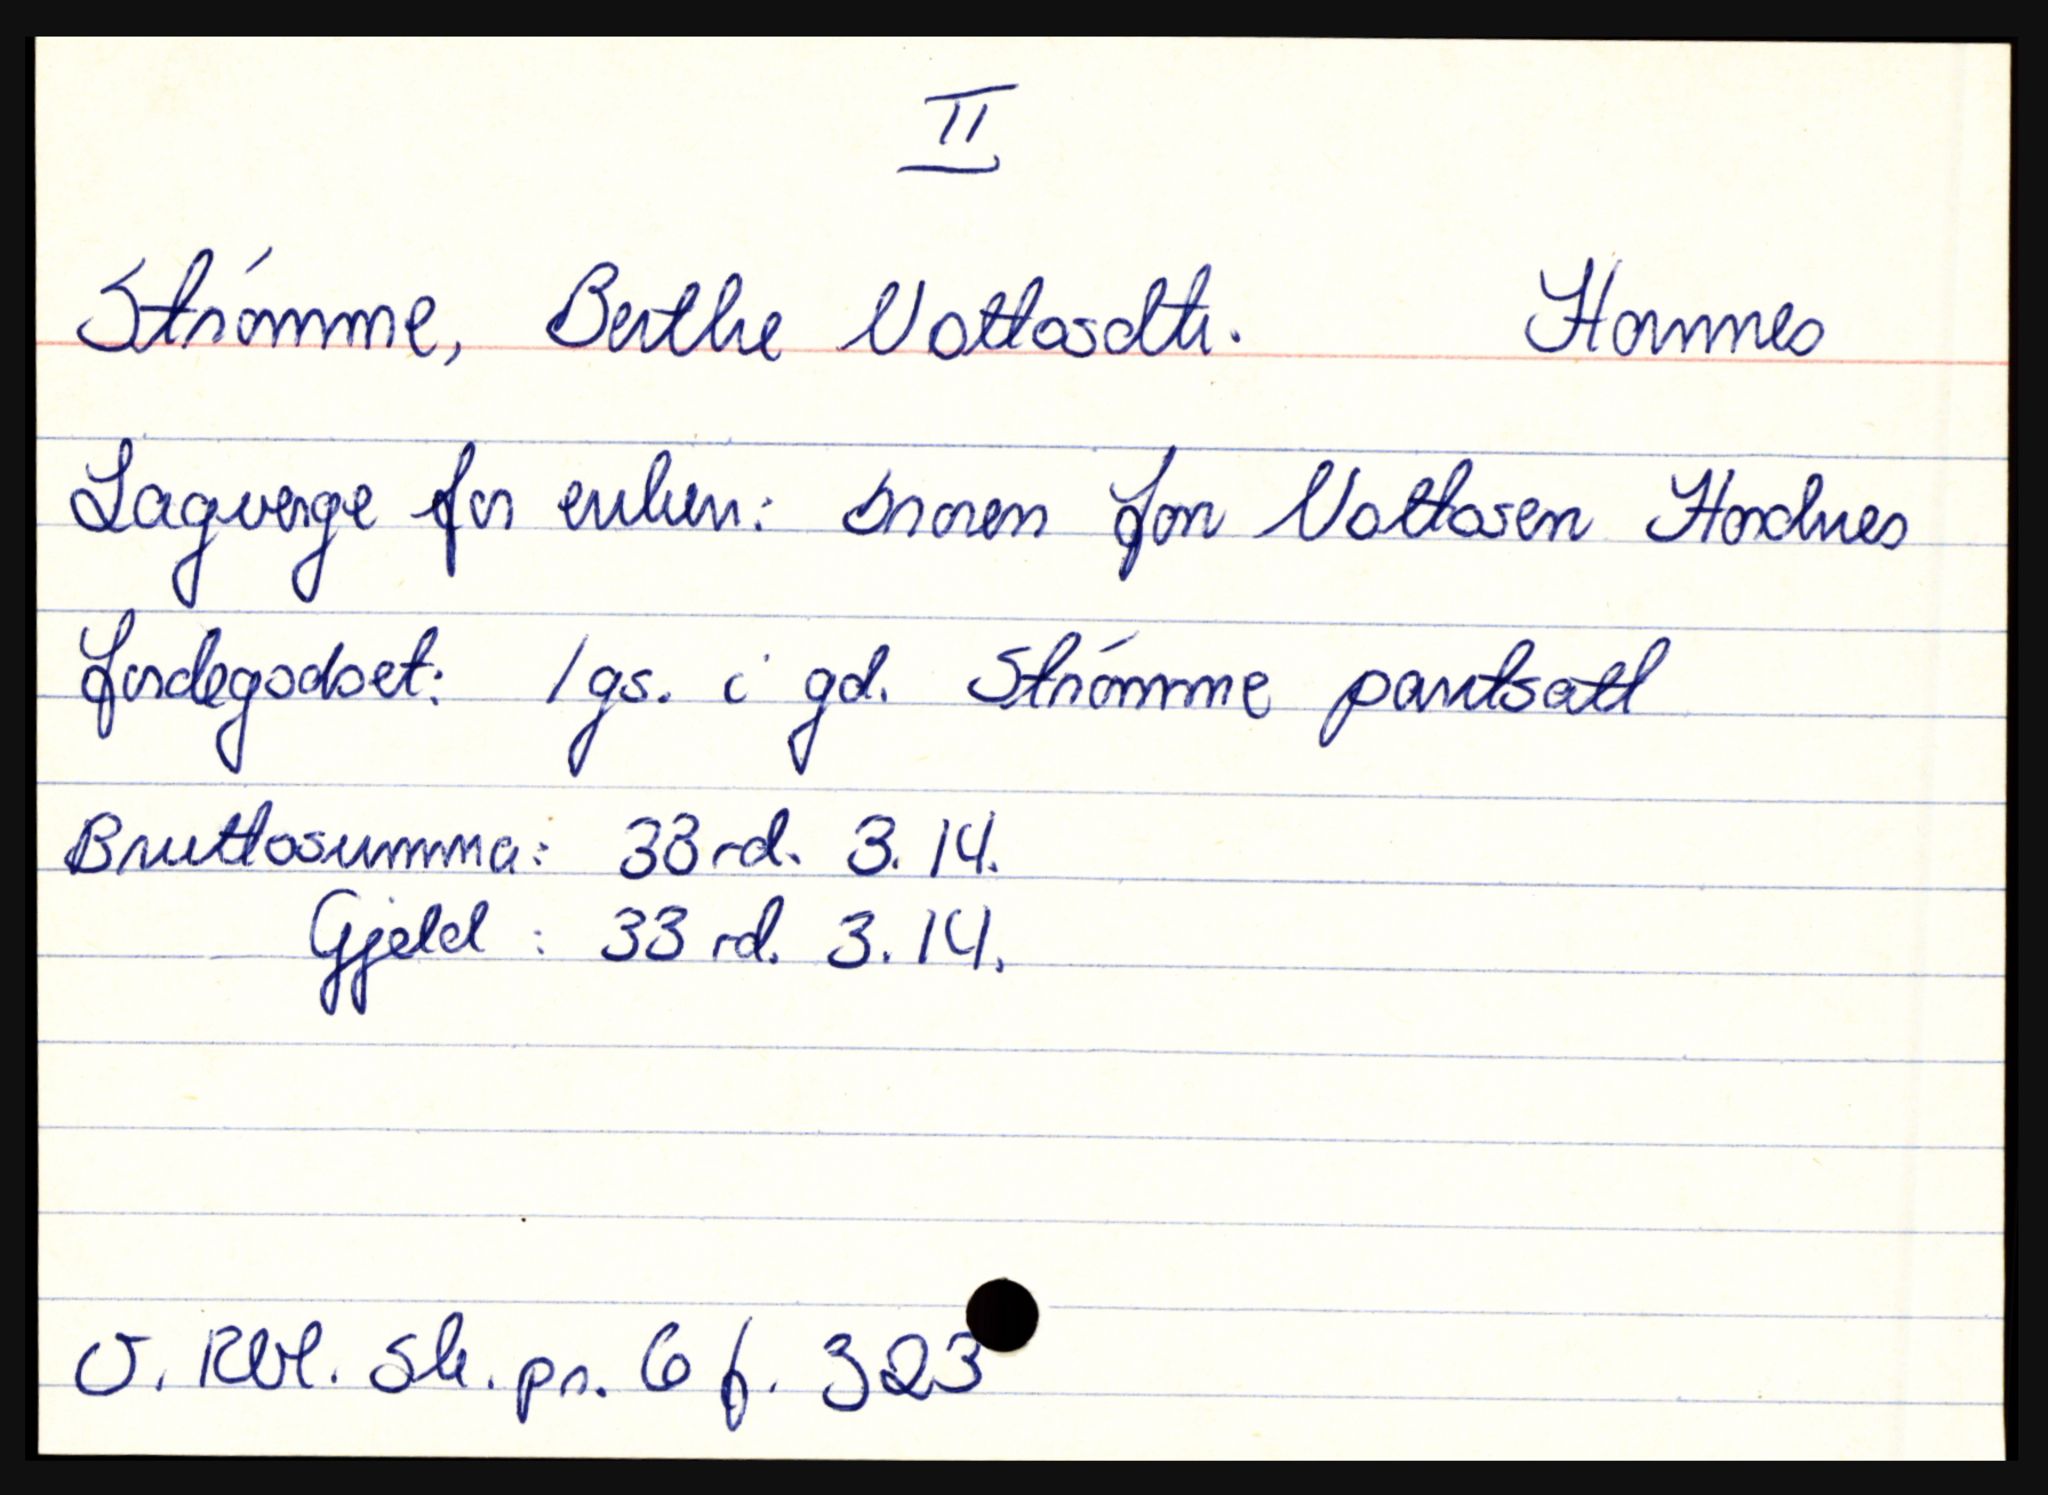 II
Strømme, Berthe Nottosdtr. Homnes
Lagverge for enken: broren Jon Nottosen Hordnes
Jordegodset: 1 gs. i gd. Strømme pantsatt
Bruttosumma: 33 rd. 3. 14.
Gjeld : 33 rd. 3. 14.
V. Rbl. Sk. pr. 6 f. 323